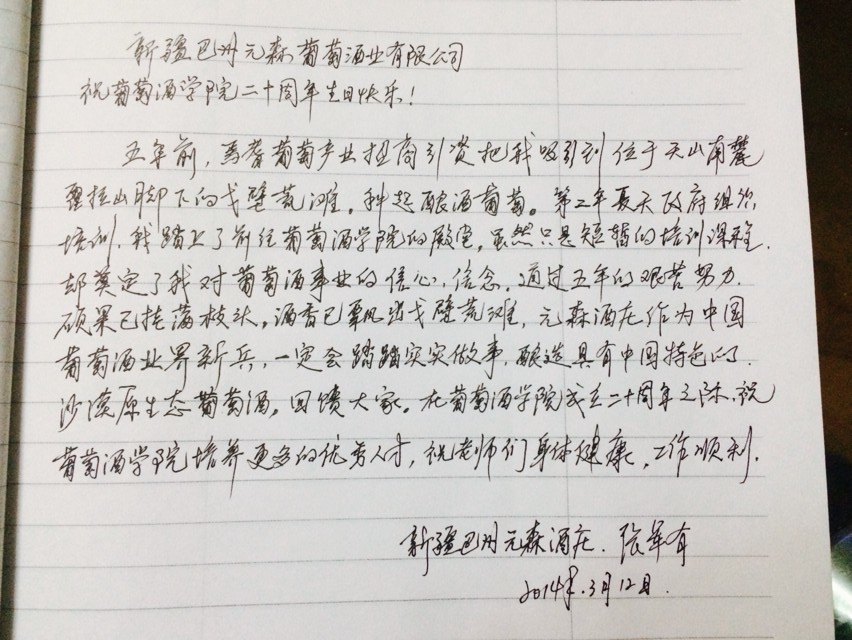 新疆巴州元森葡萄酒业有限公司
祝葡萄酒学院二十周年生日快乐！
五年前，焉耆葡萄产业招商引资把我吸引到位于天山南麓
霍拉山脚下的戈壁荒滩。种起酿酒葡萄。第二年夏天政府组织
培训，我踏上了前往葡萄酒学院的殿堂，虽然只是短暂的培训课程，
却奠定了我对葡萄酒事业的信心，信念，通过五年的艰苦努力，
硕果已挂满枝头，酒香已飘出戈壁荒滩，元森酒庄作为中国
葡萄酒业界新兵，一定会踏踏实实做事，酿造具有中国特色的，
沙漠原生态葡萄酒。回馈大家。在葡萄酒学院成立二十周年之际，祝
葡萄酒学院培养更多的优秀人才，祝老师们身体健康，工作顺利.
新疆巴州元森酒庄. 张军有
2014年.3月12日.